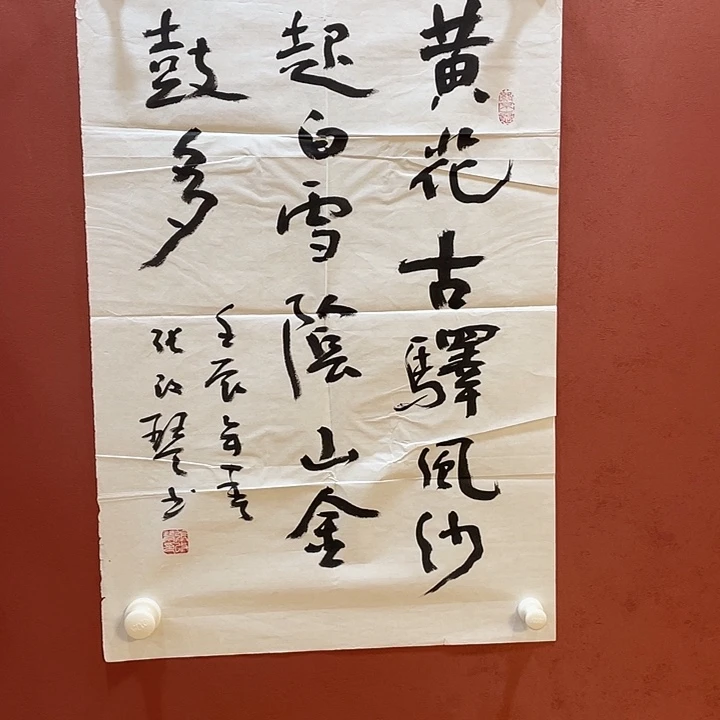 黄花古驛風沙
起白雪陰山金
鼓多
壬辰年春
張琴书